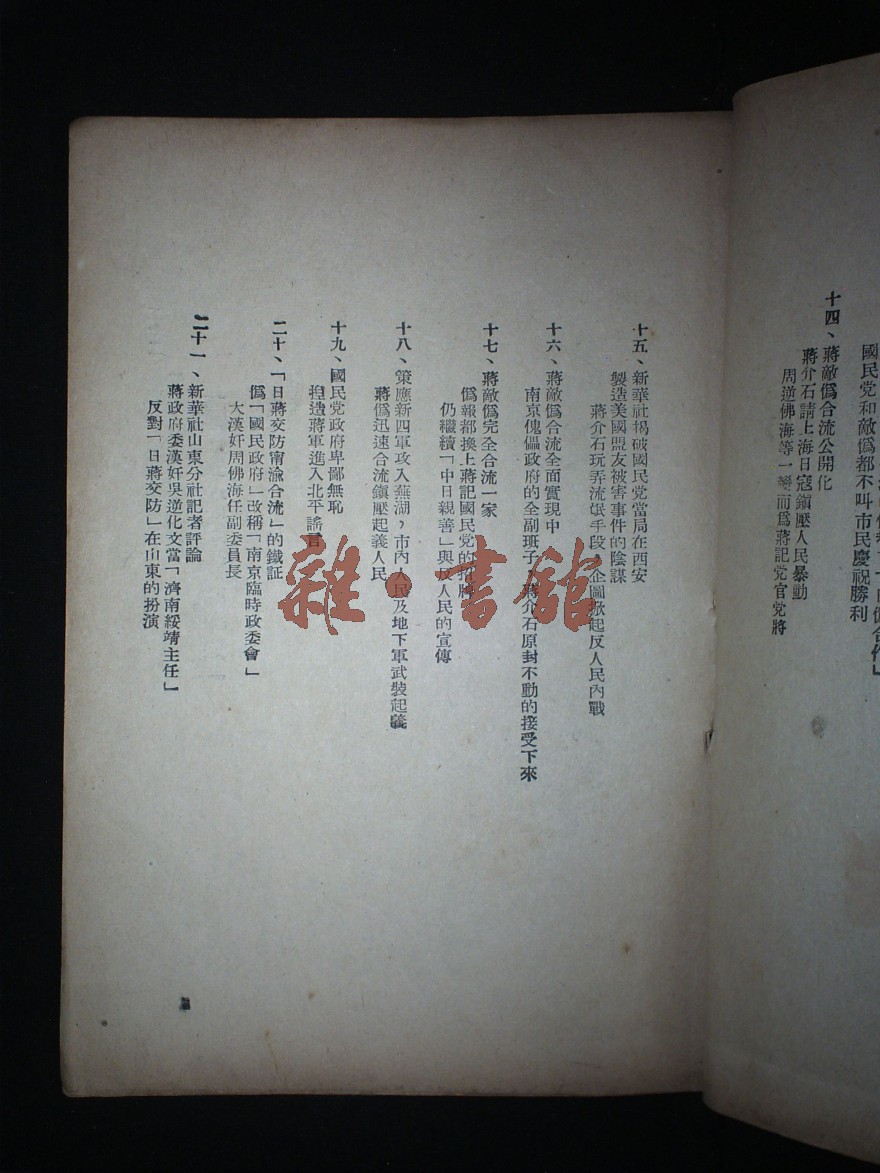 國民党和敵僞都不叫市民慶祝勝利
十四、蔣敵僞合流公開化
蔣介石請上海日寇鎭壓人民暴動
周逆佛海等一變而爲蔣記党官党將
十五、新華社揭破國民党當局在西安
製造美國盟友被害事件的陰謀
蔣介石玩弄流氓手段企圖掀起反人民內戰
十六、蔣敵僞合流全面實現中
南京傀儡政府的全副班子蔣介石原封不動的接受下來
十七、蔣敵僞完全合流一家
僞報都換上蔣記國民党的招牌
仍繼續「中日親善」與反人民的宣傳
十八、策應新四軍攻入蕪湖，市內人民及地下軍武裝起義
蔣僞迅速合流鎭壓起義人民
十九、國民党政府卑鄙無恥
揑造蔣軍進入北平謠言
二十、「日蔣交防南渝合流」的鐵証
僞「國民政府」改稱「南京臨時政委會」
大漢奸周佛海任副委員長
二十一、新華社山東分社記者評論
蔣政府委漢奸吳逆化文當「濟南綏靖主任」
反對「日蔣交防」在山東的扮演
雜·書館